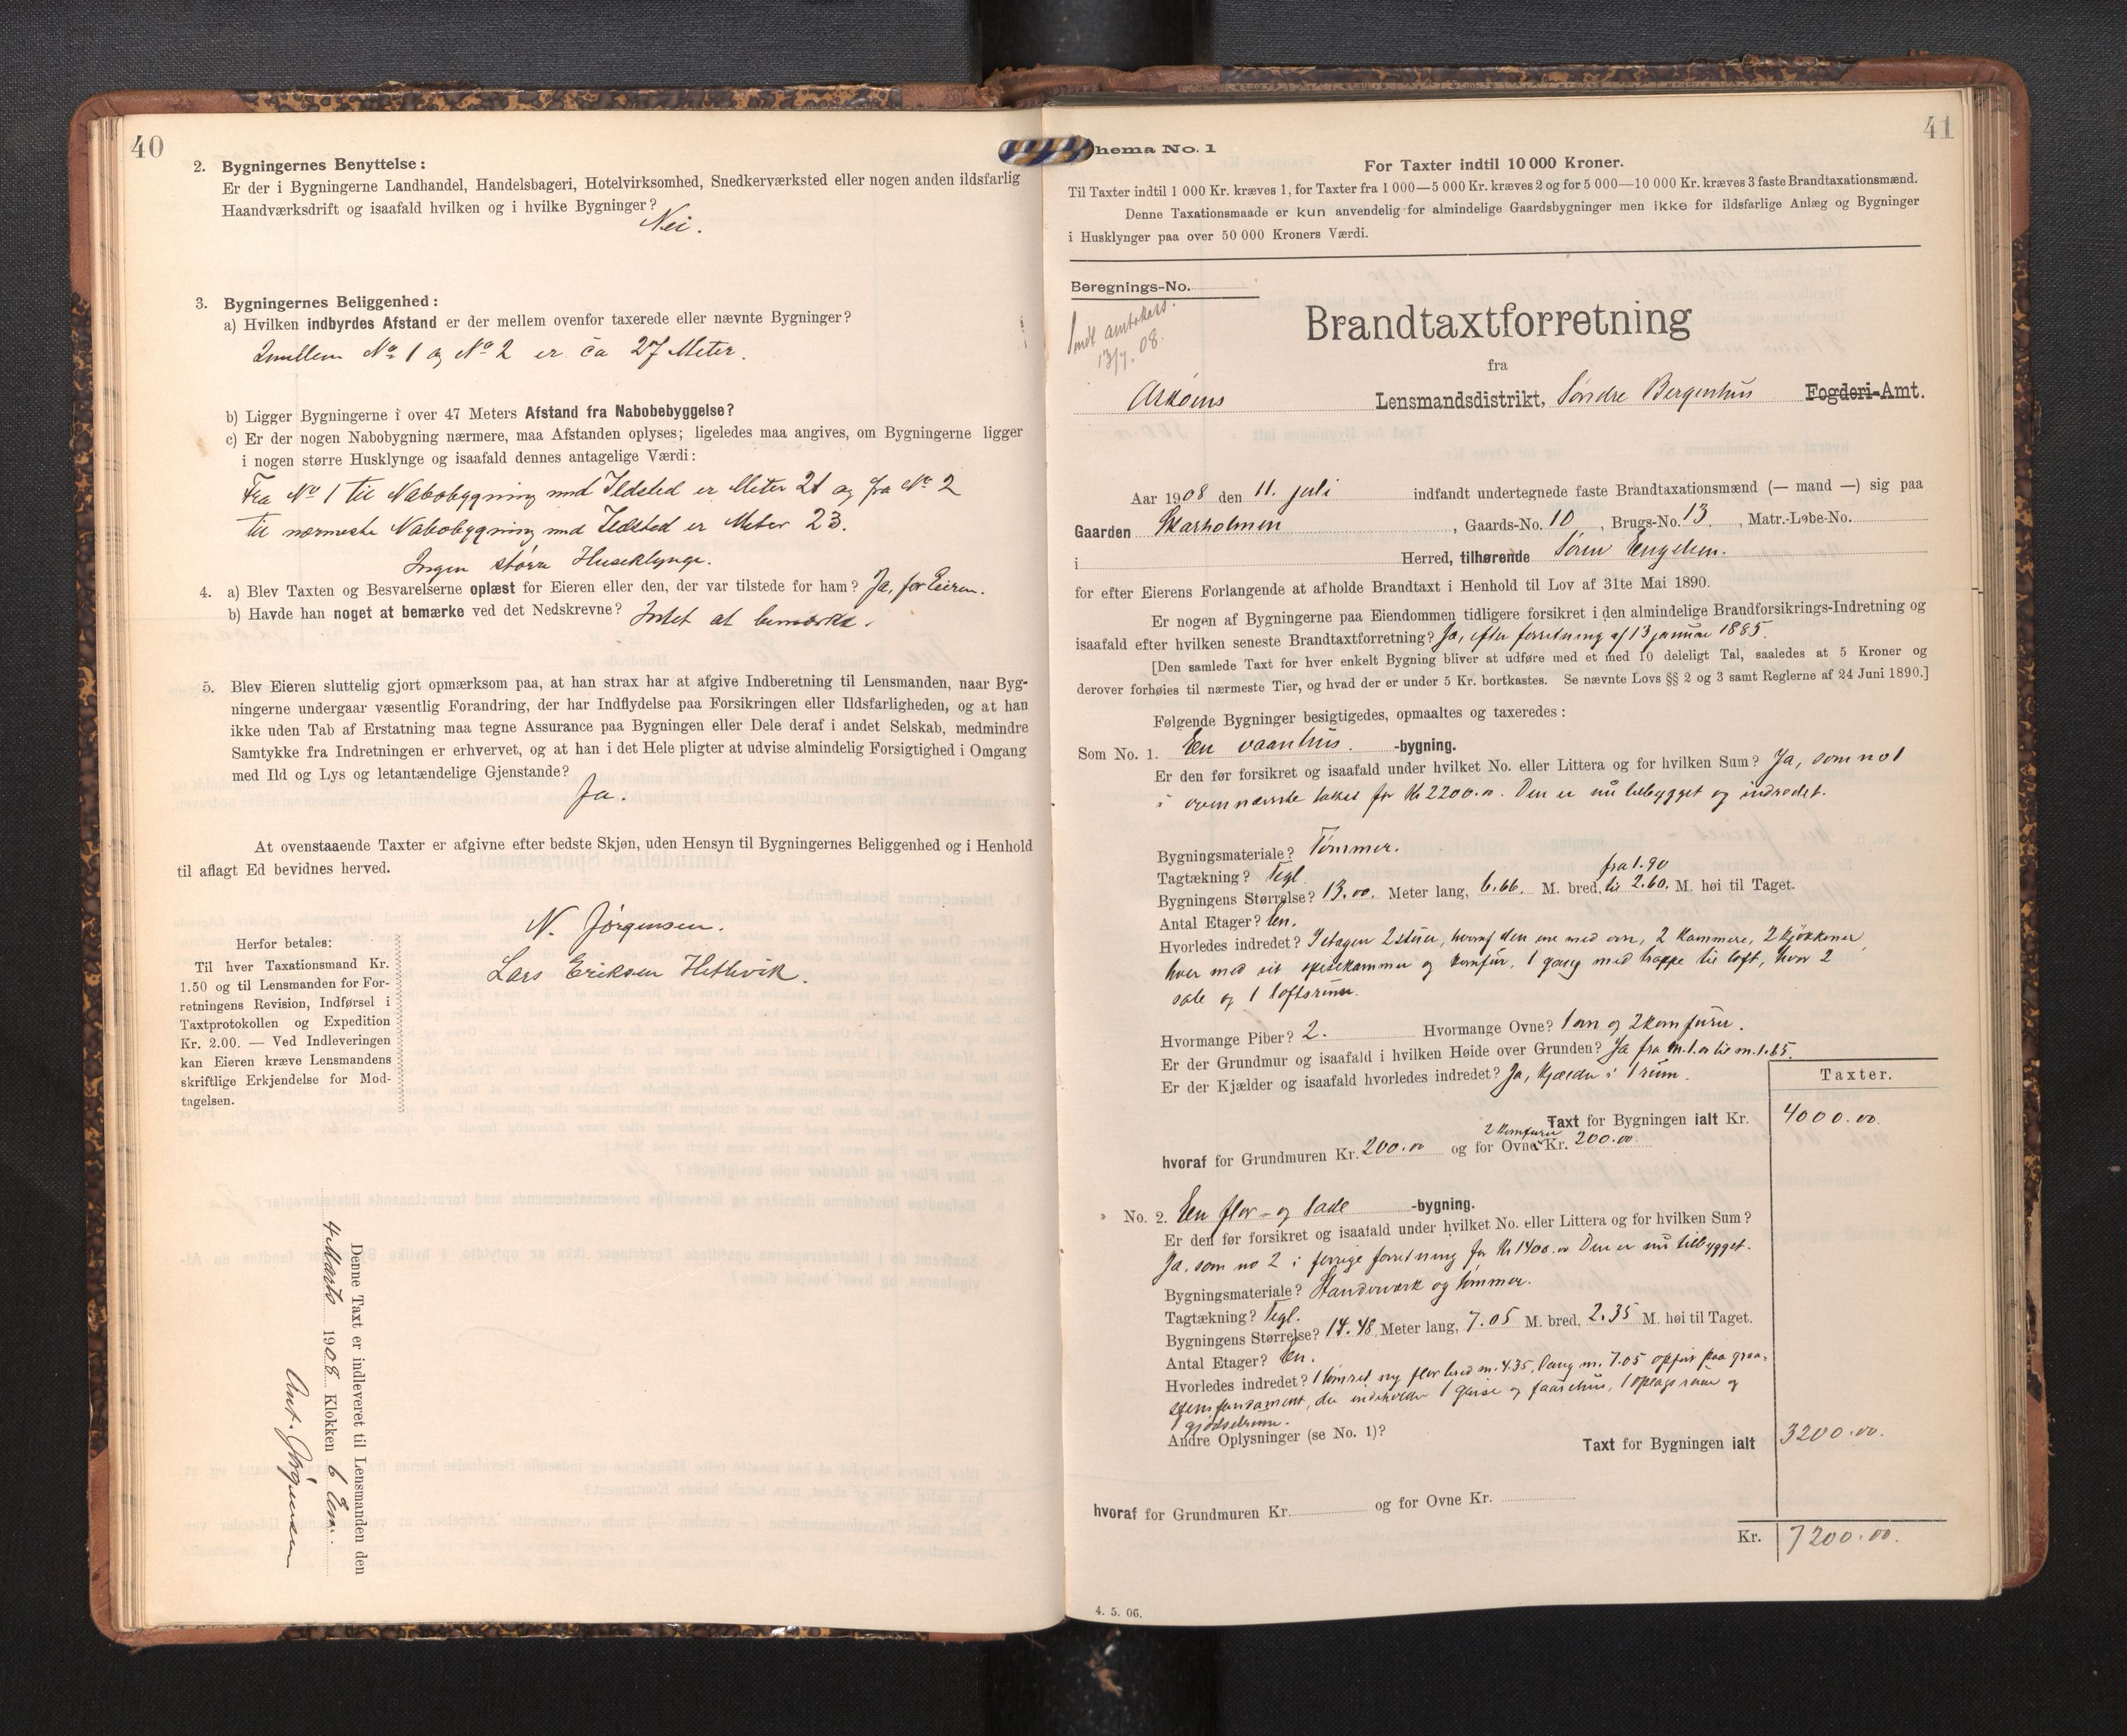 40
2. Bygningernes Benyttelse:
Er der i Bygningerne Landhandel, Handelsbageri, Hotelvirksomhed, Snedkerværksted eller nogen anden ildsfarlig
Haandværksdrift og isaafald hvilken og i hvilke Bygninger?
Nei.
3. Bygningernes Beliggenhed:
a) Hvilken indbyrdes Afstand er der mellem ovenfor taxerede eller nævnte Bygninger?
Imellem No 1 og No 2 er ca 27 Meter.
b) Ligger Bygningerne i over 47 Meters Afstand fra Nabobebyggelse?
c) Er der nogen Nabobygning nærmere, maa Afstanden oplyses; ligeledes maa angives, om Bygningerne ligger
i nogen større Husklynge og isaafald dennes antagelige Værdi:
Fra No 1 til Nabobygning med Ildsted er Meter 21 og fra No 2
til nærmeste Nabobygning med Ildsted er Meter 23.
Ingen større Huseklynge.
4. a) Blev Taxten og Besvarelserne oplæst for Eieren eller den, der var tilstede for ham? Ja, for Eieren.
b) Havde han noget at bemærke ved det Nedskrevne? Intet at bemærke.
5. Blev Eieren sluttelig gjort opmærksom paa, at han strax har at afgive Indberetning til Lensmanden, naar Byg-
ningerne undergaar væsentlig Forandring, der har Indflydelse paa Forsikringen eller Ildsfarligheden, og at han
ikke uden Tab af Erstatning maa tegne Assurance paa Bygningen eller Dele deraf i andet Selskab, medmindre
Samtykke fra Indretningen er erhvervet, og at han i det Hele pligter at udvise almindelig Forsigtighed i Omgang
med Ild og Lys og letantændelige Gjenstande?
Ja.
At ovenstaaende Taxter er afgivne efter bedste Skjøn, uden Hensyn til Bygningernes Beliggenhed og i Henhold
til aflagt Ed bevidnes herved.
N. Jørgensen.
Lars Eriksen Hethvik.
Herfor betales:
Til hver Taxationsmand Kr.
1.50 og til Lensmanden for For-
retningens Revision, Indførsel i
Taxtprotokollen og Expedition
Kr. 2.00. — Ved Indleveringen
kan Eieren kræve Lensmandens
skriftlige Erkjendelse for Mod-
tagelsen.
Denne Taxt er indleveret til Lensmanden den
4 Marts 1908 Klokken 6 Em.
Ant. Jörgensen
41
hema No. 1
For Taxter indtil 10 000 Kroner.
Til Taxter indtil 1 000 Kr. kræves 1, for Taxter fra 1 000—5 000 Kr. kræves 2 og for 5 000—10 000 Kr. kræves 3 faste Brandtaxationsmænd.
Denne Taxationsmaade er kun anvendelig for almindelige Gaardsbygninger men ikke for ildsfarlige Anlæg og Bygninger
i Husklynger paa over 50 000 Kroners Værdi.
Beregnings-No.
Sendt amtskass.
13/7. 08.
Brandtaxtforretning
fra
Askøens Lensmandsdistrikt, Søndre Bergenhus Fogderi-Amt.
Aar 1908 den 11. juli indfandt undertegnede faste Brandtaxationsmænd (— mand —) sig paa
Gaarden Skarholmen, Gaards-No. 10, Brugs-No. 13, Matr.-Løbe-No.
i Herred, tilhørende Søren Engelsen.
for efter Eierens Forlangende at afholde Brandtaxt i Henhold til Lov af 31te Mai 1890.
Er nogen af Bygningerne paa Eiendommen tidligere forsikret i den almindelige Brandforsikrings-Indretning og
isaafald efter hvilken seneste Brandtaxtforretning? Ja, efter forretning af 13 januar 1885.
[Den samlede Taxt for hver enkelt Bygning bliver at udføre med et med 10 deleligt Tal, saaledes at 5 Kroner og
derover forhøies til nærmeste Tier, og hvad der er under 5 Kr. bortkastes. Se nævnte Lovs §§ 2 og 3 samt Reglerne af 24 Juni 1890.]
Følgende Bygninger besigtigedes, opmaaltes og taxeredes:
Som No. 1. En vaanhus -bygning.
Er den før forsikret og isaafald under hvilket No. eller Littera og for hvilken Sum? Ja, som no 1
i ovennævnte takst for Kr 2200.00. Den er nu tilbygget og indredet.
Bygningsmateriale? Tømmer.
Tagtækning? Tegl.
fra 1.90
Bygningens Størrelse? 13.00. Meter lang, 6.66. M. bred, til 2.60. M. høi til Taget.
Antal Etager? En.
Hvorledes indredet? I etagen 2 stuer, hvoraf den ene med ovn, 2 kammere, 2 kjøkkener
hver med sit spisekammer og komfur, 1 gang med trappe til loft, hvor 2
sale og 1 loftsrum.
Hvormange Piber? 2. Hvormange Ovne? 1 ovn og 2 komfurer.
Er der Grundmur og isaafald i hvilken Høide over Grunden? Ja fra m. 1.0 til m. 1.65.
Er der Kjælder og isaafald hvorledes indredet? Ja, kjælder i 1 rum.
Taxter.
Taxt for Bygningen ialt Kr. 4000.00.
2 komfurer
hvoraf for Grundmuren Kr. 200.00 og for Ovne Kr. 200.00
No. 2. En flor- og lade -bygning.
Er den før forsikret og isaafald under hvilket No. eller Littera og for hvilken Sum?
Ja, som no 2 i forrige forretning for Kr 1400.00 Den er nu tilbygget.
Bygningsmateriale? Standerværk og tømmer.
Tagtækning? Tegl.
Bygningens Størrelse? 14.48 Meter lang, 7.05 M. bred, 2.35 M. høi til Taget.
Antal Etager? En.
Hvorledes indredet? 1 tømret ny flor bred m. 4.35, lang m. 7.05 opført paa graa-
stens fundament, der indeholder 1 grise og faarehus, 1 oplags rum og
1 gjødselrum.
Andre Oplysninger (se No. 1)?
Taxt for Bygningen ialt 3200.00.
hvoraf for Grundmuren Kr. og for Ovne Kr.
Kr. 7200.00.
4. 5. 06.